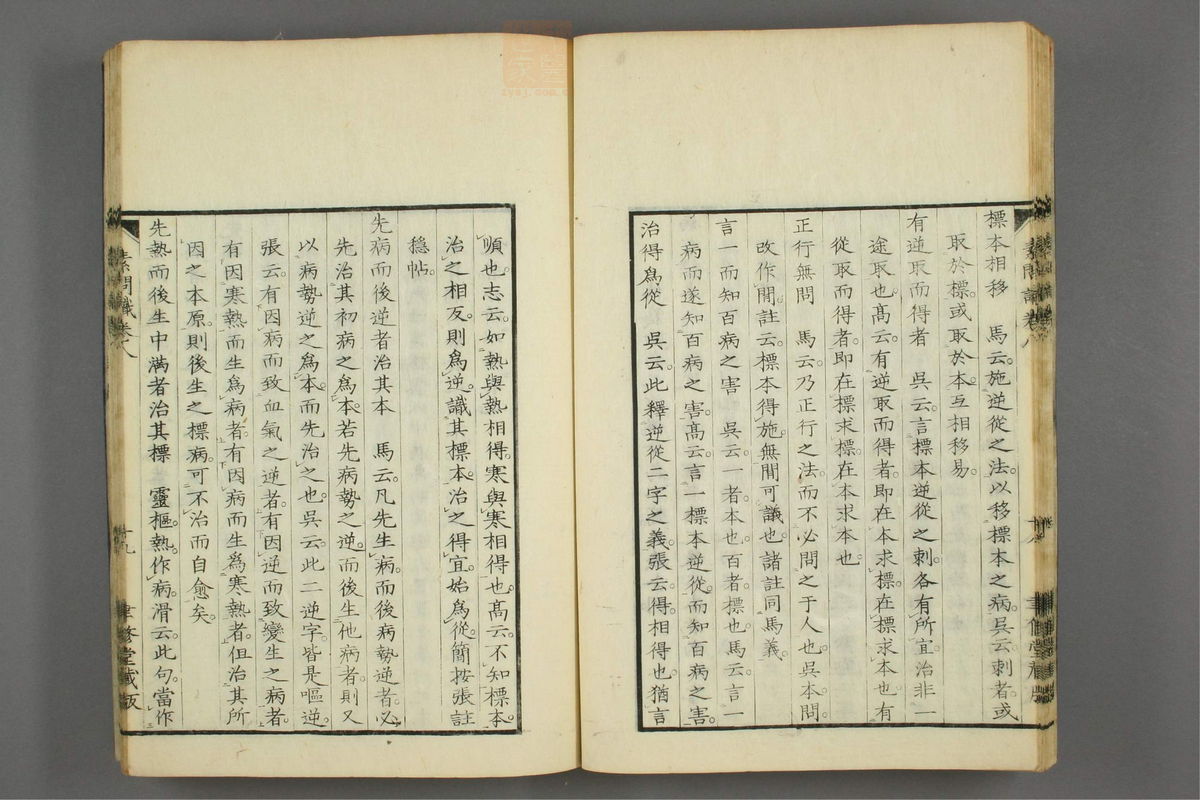 標本相移　馬云。施逆從之法。以移標本之病。吳云。刺者。或
取於標。或取於本。互相移易。
有逆取而得者　吳云。言標本逆從之刺。各有所宜。治非一
途取也。高云。有逆取而得者。即在本求標。在標求本也。有
從取而得者。即在標求標。在本求本也。
正行無問　馬云。乃正行之法。而不必問之于人也。吳本。問
改作閒。註云。標本得施。無閒可議也。諸註同馬義。
言一而知百病之害　吳云。一者。本也。百者。標也。馬云。言一
病而遂知百病之害。高云。言一標本逆從。而知百病之害。
治得爲從　吳云。此釋逆從二字之義。張云。得。相得也。猶言
順也。志云。如熱與熱相得。寒與寒相得也。高云。不知標本。
治之相反。則爲逆。識其標本。治之得宜。始爲從。簡按張註
穩帖。
先病而後逆者治其本　馬云。凡先生病。而後病勢逆者。必
先治其初病之爲本。若先病勢之逆。而後生他病者。則又
以病勢逆之爲本。而先治之也。吳云。此二逆字。皆是嘔逆。
張云。有因病而致血氣之逆者。有因逆而致變生之病者。
有因寒熱而生爲病者。有因病而生爲寒熱者。但治其所
因之本原。則後生之標病。可不治而自愈矣。
先熱而後生中滿者治其標　靈樞。熱。作病。滑云。此句。當作
素問識卷八
十九
聿修堂藏版